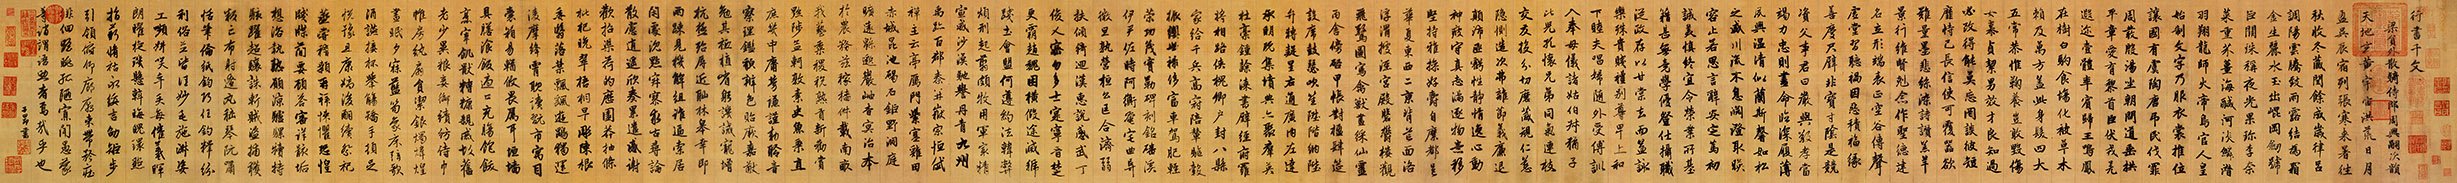 行書千文
梁員外散騎侍郎周興嗣次韻
天地玄黃宇宙洪荒日月
盈昃辰宿列張寒来暑往
秋收冬蔵閏餘成歲律吕
調陽雲騰致雨露結為霜
金生麗水玉出崐岡劔號
巨闕珠稱夜光果珎李柰
菜重芥薑海鹹河淡鱗潜
羽翔龍師火帝鳥官人皇
始制文字乃服衣裳推位
讓國有虞陶唐吊民伐罪
周發殷湯坐朝問道垂拱
平章愛育黎首臣伏戎羌
遐迩壹體率賔歸王鳴鳳
在樹白駒食場化被草木
賴及萬方蓋此身髮四大
五常恭惟鞠養豈敢毀傷
女慕貞絜男效才良知過
必改得能莫忘罔談彼短
靡恃己長信使可覆器欲
難量墨悲絲染詩讚羔羊
景行維賢尅念作聖德建
名立形端表正空谷傳聲
虛堂習聽禍因惡積福緣
善慶尺璧非寳寸陰是競
資父事君曰嚴與敬孝當
竭力忠則盡命臨深履薄
夙興温凊似蘭斯馨如松
之盛川流不息淵澄取暎
容止若思言辭安定篤初
誠美慎終宜令榮業所基
籍甚無竟學優登仕攝職
從政存以甘棠去而益詠
樂殊貴賤禮別尊卑上和
下睦夫唱婦随外受傅訓
入奉母儀諸姑伯叔猶子
比兒孔懷兄弟同氣連枝
交友投分切磨箴規仁慈
隱惻造次弗離節義廉退
顛沛匪虧性静情逸心動
神疲守真志滿逐物意移
堅持雅操好爵自縻都邑
華夏東西二京背芒面洛
浮渭據涇宫殿盤欝樓觀
飛驚圖寫禽獸畫綵仙靈
丙舍傍啓甲帳對楹肆筵
設席鼓瑟吹笙陞階納陛
弁轉疑星右通廣内左達
承明既集墳典亦聚羣英
杜稾鍾隸漆書壁經府羅
將相路俠槐卿户封八縣
家給千兵高冠陪輦驅轂
振纓世禄侈富車駕肥輕
策功茂實勒碑刻銘磻溪
伊尹佐時阿衡奄宅曲阜
微旦孰營桓公匡合濟弱
扶傾綺迴漢惠說感武丁
俊乂密勿多士寔寧晉楚
更霸趙魏困横假途滅虢
踐土會盟何遵約法韓弊
煩刑起翦頗牧用軍冣精
宣威沙漠馳譽丹青九州
禹跡百郡秦并嶽宗恒岱
禪主云亭鴈門紫塞雞田
赤城昆池碣石鉅野洞庭
曠遠緜邈巖岫杳冥治本
於農務兹稼穡俶載南畝
我藝黍稷稅熟貢新勸賞
黜陟孟軻敦素史魚秉直
庶幾中庸勞謙謹勑聆音
察理鑑貌辨色貽厥嘉猷
勉其祗植省躬譏誡寵增
抗極殆辱近恥林皋幸即
兩疏見機解組誰逼索居
閑處沉默寂寥求古尋論
散慮逍遥欣奏累遣慼謝
歡招渠荷的歷園莽抽條
枇杷晚翠梧桐早彫陳根
委翳落葉飄颻遊鵾獨運
凌摩絳霄耽讀翫市寓目
囊箱易輶攸畏屬耳垣墻
具膳湌飯適口充腸飽飫
烹宰飢猒糟糠親戚故舊
老少異粮妾御績紡侍巾
帷房紈扇員潔銀燭煒煌
晝眠夕寐藍笋象床絃歌
酒讌接杯舉觴矯手頓足
恱豫且康嫡後嗣續祭祀
蒸甞稽顙再拜悚懼恐惶
牋牒簡要顧答審詳骸垢
想浴執熱願凉驢騾犢特
駭躍超驤誅斬賊盗捕獲
叛亡布射遼丸嵇琴阮嘯
恬筆倫紙鈞巧任釣釋紛
利俗並皆佳妙毛施淑姿
工嚬妍笑年矢每催羲暉
朗曜旋璣懸斡晦魄環照
指薪脩祜永綏吉劭矩步
引領俯仰廊廟束帶矜莊
徘徊瞻眺孤陋寡聞愚蒙
等誚謂語助者焉哉乎也
子昂書